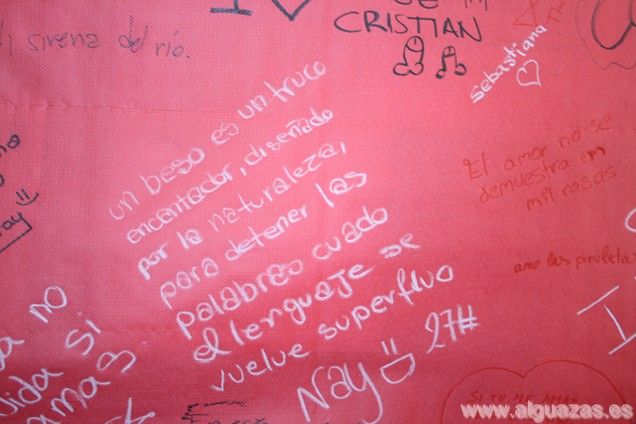 CRISTIAN
sirena del río.
Sebastiana
un beso es un truco
encantador, diseñado
por la naturaleza,
para detener las
palabras cuado
el lenguaje se
vuelve superfluo
Nay 27#
El amor no se
demuestra en
mil rosas.
amo las piruleta
no
vida si
amas
I
SI TU ME AMAS
www.alguazas.es